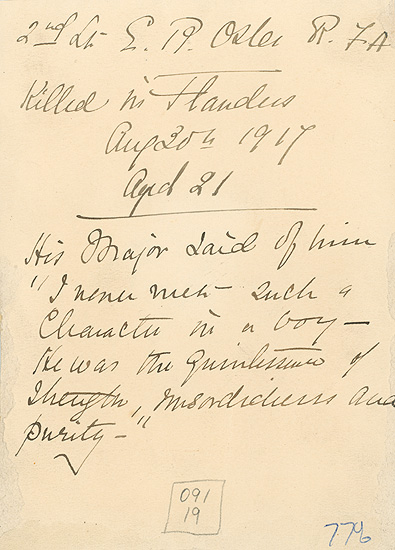 2nd Lt E. R. Osler R. F A
Killed in Flanders
Aug 30th 1917
Aged 21
His Major said of him
"I never met such a
Character in a boy —
He was the quintessence of
Strength, unsordidness and
purity —"
091
19
776